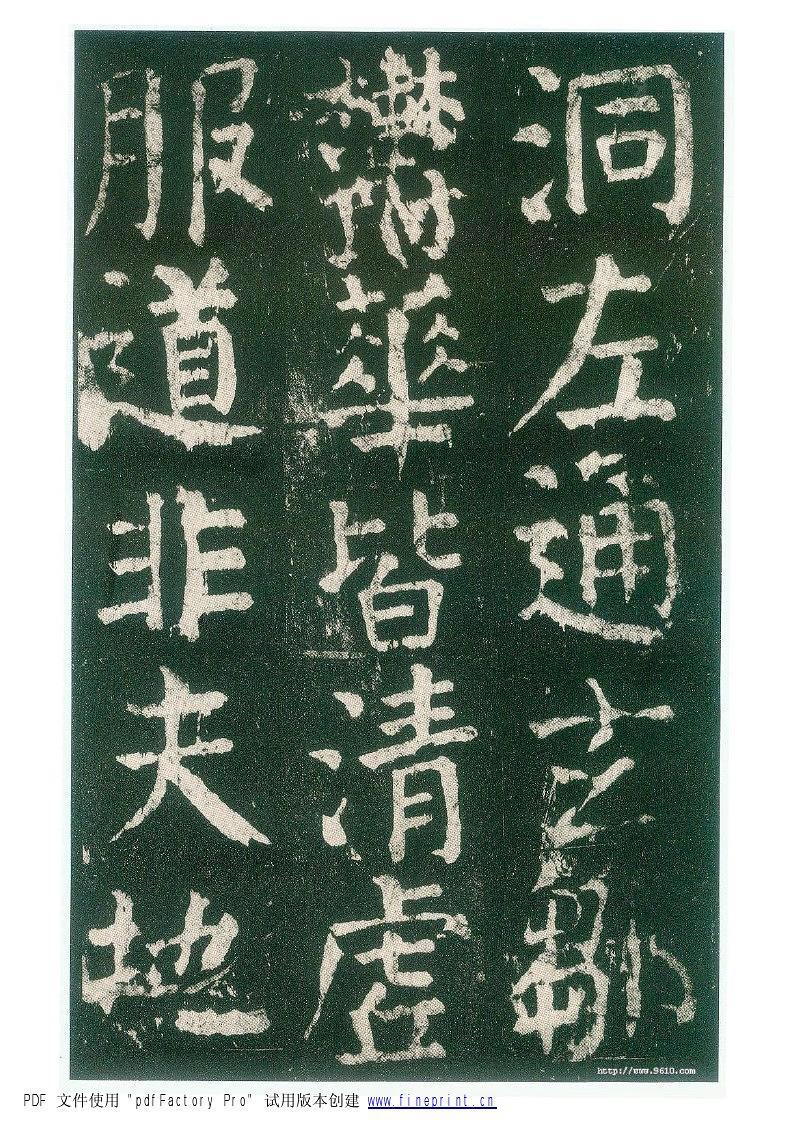 洞左通玄鄒
鬱華皆清虛
服道非夫地
http://www.9610.com
PDF 文件使用 "pdfFactory Pro" 试用版本创建 www.fineprint.cn